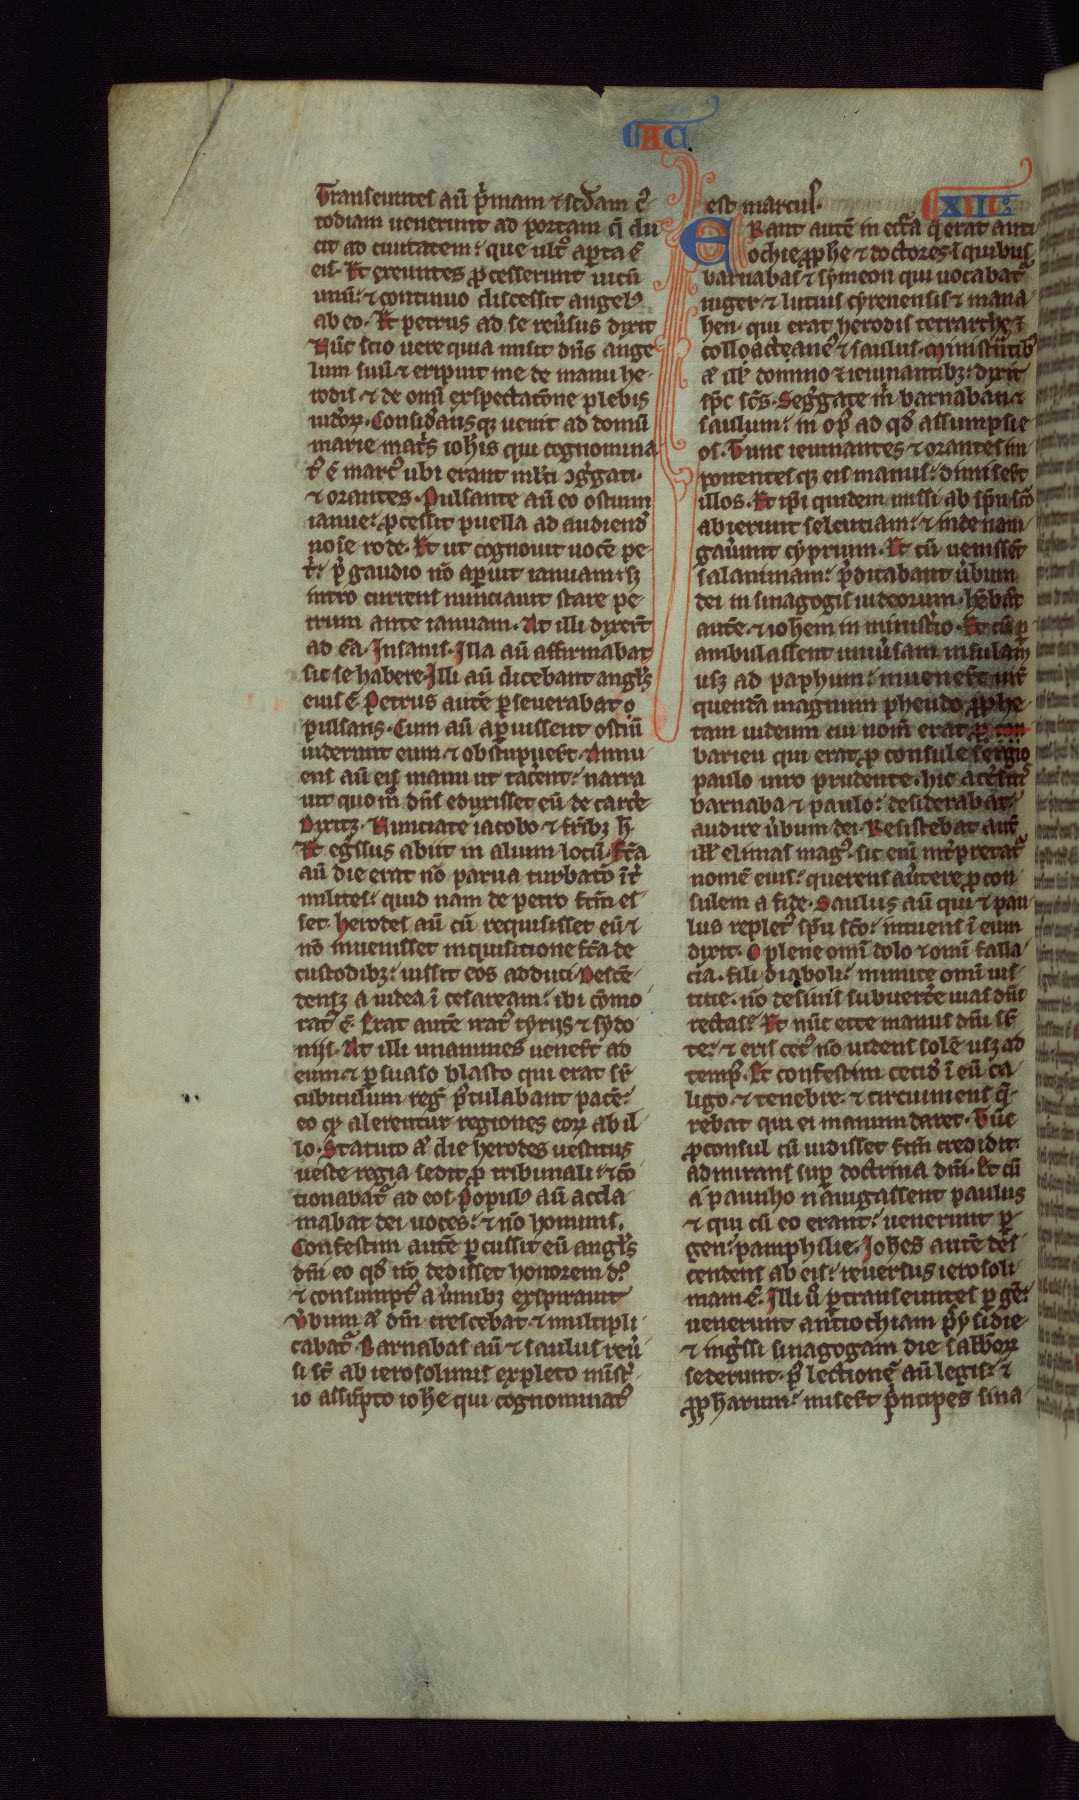 AC
Transeuntes aū p̄mam ⁊ scd̄am c᷒
todiam uenerunt ad portam q̄ du
cit ad ciuitatem: que ult᷒ aperta ē
eis. Et exeuntes ꝓcesserunt uicū
unū: ⁊ continuo discessit angel᷒
ab eo. Et petrus ad se reūsus dixit
Nūc scio uere quia misit dn̄s ange
lum suū ⁊ eripuit me de manu he
rodis ⁊ de om̄i exspectatōne plebis
iudōꝝ. Considāns qꝫ uenit ad domū
marie mat̄s ioh̄is qui cognomina
t᷒ ē marc᷒ ubi erant ml̄ti ꝯḡgati.
⁊ orantes. Pulsante aū eo ostium
ianue: ꝓcessit puella ad audiend᷒
noīe rode. Et ut cognouit uocē pe
t̄: p̄ gaudio nō aꝑuit ianuam: sꝫ
intro currens nunciauit stare pe
trum ante ianuam. At illi dixer̄t
ad eā. Insanis. Illa aū affirmabat
sic se habere. Illi aū dicebant angl̄s
eius ē. Petrus autē ꝑseuerabat
pulsans. Cum aū aꝑuissent ostiū
uiderunt eum ⁊ obstupuer̄t. Annu
ens aū eis manu ut tac̄ent: narra
uit quom̄ dn̄s eduxisset eū de carc̄e
Dixitqꝫ. Nunciate iacobo ⁊ fr̄ibꝫ h̄
Et eḡssus abiit in alium locū. Fc̄a
aū die erat nō parua turbatō īt̄
milites: quid nam de petro fc̄m es
set. herodes aū cū requisisset eū ⁊
nō inuenisset inquisitione fc̄a de
custodibꝫ: iussit eos adduci. Descē
densqꝫ a iudea ī cesaream: ibi cōmo
rat᷒ ē. Erat autē irat᷒ tyrijs ⁊ sydo
nijs. At illi unanimes uener̄t ad
eum ⁊ ꝑsuaso blasto qui erat sr̄
cubiculum reḡ p̄tulabant pacē:
eo ꝙ alerentur regiones eoꝝ ab il
lo. Statuto aū die herodes uestitus
ueste regia sedit ꝓ tribunali: ⁊ cō
tionabat᷒ ad eos. Popul᷒ aū accla
mabat dei uoces: ⁊ nō hominis.
Confestim autē ꝑcussit eū angl̄s
dn̄i eo qd̄ nō dedisset honorem d᷒o
⁊ consumpt᷒ a ūmibꝫ exspirauit
Ūbum aū dn̄i crescebat ⁊ multipli
cabat᷒. Barnabas aū ⁊ saulus reū
si st̄ ab ierosolimis expleto mīst̄
io assūpto iohe qui cognominat᷒
est marcus.
XIII
ERant autē in eccl̄a q̄ erat anti
ochie ꝓphe ⁊ doctores ī quibus
barnabas ⁊ symeon qui uocabat᷒
niger ⁊ lucius cyrenensis ⁊ mana
hen. qui erat herodis tetrarche
collactane᷒ ⁊ saulus. Ministn̄tib᷒
aū ill̄ domino ⁊ ieiunantibꝫ: dixit
sp̄c sc̄s. Seḡgate m̄ barnaban ⁊
saulum: in op᷒ ad qd̄ assumpsi e
os. Tunc ieiunantes ⁊ orantes im
ponentes qꝫ eis manus: dimiser̄t
illos. Et ip̄i quidem missi ab sp̄u sc̄o
abierunt seleuciam: ⁊ inde naui
gaūnt cyprum. Et cū uenissēt
salaminam: p̄dicabant ūbum
dei in sinagogis iudeorum. Hēbāt
autē ⁊ iohem in minist̄io. Et cū ꝑ
ambulassent uniūsam insulam
usqꝫ ad paphum: inuener̄t uir̄
quendā magnum pheudo ꝓphe
tam iudeum cui nom̄ erat
barieu qui erat ꝓ consule sergio
paulo uiro prudente. hic acc̄sit᷒
barnaba ⁊ paulo: desiderabat
audire ūbum dei. Resistebat aut̄
ill̄ elimas mag᷒. sic eni int̄pretat᷒
nomē eius: querens aūtere ꝓcon
sulem a fide. Saulus aū qui ⁊ pau
lus replet᷒ sp̄u sc̄o: intuens ī eum
dixit. O plene om̄i dolo ⁊ om̄i falla
cia. fili diaboli: inimice om̄i ius
titie. nō desinis subuert̄e uias dn̄i
rectas: Et nūc ecce manus dn̄i sr̄
te: ⁊ eris cec᷒ nō uidens solē usqꝫ ad
temp᷒. Et confestim cecid᷒ ī eū ca
ligo ⁊ tenebre. ⁊ circuiens q̄
rebat qui ei manum daret. Tūc
ꝓconsul cū uidisset fc̄m credidit
admirans suꝑ doctrina dn̄i. Et cū
a papho nauigassent paulus
⁊ qui cū eo erant: uenerunt ꝑ
gen: pamphilie. Iohes autē dēs
cendens ab eis: reuersus ierosoli
mam ē. Illi ū ꝑtranseuntes ꝑgē:
uenerunt antiochiam p̄sydie
⁊ ing̃ssi sinagogam die sabbōꝝ
sederunt. p᷒ lectionē aū legis: ⁊
ꝓpharum: miser̄t p̄ncipes sina